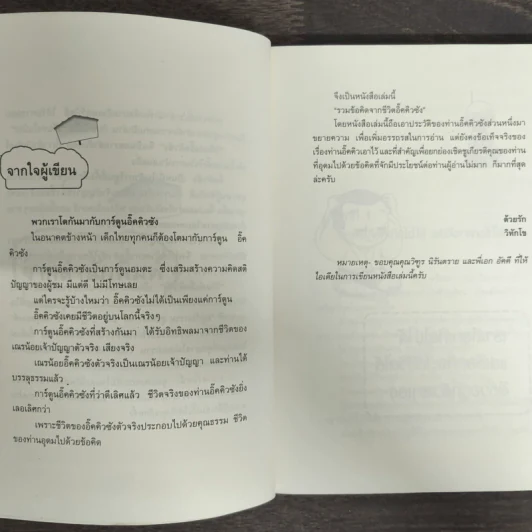 จากใจผู้เขียน
พวกเราโตกันมากับการ์ตูนอิ๊คคิวซัง
ในอนาคตข้างหน้า เด็กไทยทุกคนก็ต้องโตมากับการ์ตูน อิ๊ค
คิวซัง
การ์ตูนอิ๊คคิวซังเป็นการ์ตูนอมตะ ซึ่งเสริมสร้างความคิดสติ
ปัญญาของผู้ชม มีแต่ดี ไม่มีโทษเลย
แต่ใครจะรู้บ้างไหมว่า อิ๊คคิวซังไม่ได้เป็นเพียงแค่การ์ตูน
อิ๊คคิวซังเคยมีชีวิตอยู่บนโลกนี้จริงๆ
การ์ตูนอิ๊คคิวซังที่สร้างกันมา ได้รับอิทธิพลมาจากชีวิตของ
เณรน้อยเจ้าปัญญาตัวจริง เสียงจริง
เณรน้อยอิ๊คคิวซังตัวจริงเป็นเณรน้อยเจ้าปัญญา และท่านได้
บรรลุธรรมแล้ว
การ์ตูนอิ๊คคิวซังที่ว่าดีเลิศแล้ว ชีวิตจริงของท่านอิ๊คคิวซังยิ่ง
เลอเลิศกว่า
เพราะชีวิตของอิ๊คคิวซังตัวจริงประกอบไปด้วยคุณธรรม ชีวิต
ของท่านอุดมไปด้วยข้อคิด
จึงเป็นหนังสือเล่มนี้
"รวมข้อคิดจากชีวิตอิ๊คคิวซัง"
โดยหนังสือเล่มนี้ถือเอาประวัติของท่านอิ๊คคิวซังส่วนหนึ่งมา
ขยายความ เพื่อเพิ่มอรรถรสในการอ่าน แต่ยังคงข้อเท็จจริงของ
เรื่องท่านอิ๊คคิวเอาไว้ และที่สำคัญเพื่อยกย่องเชิดชูเกียรติคุณของท่าน
ที่อุดมไปด้วยข้อคิดที่จักมีประโยชน์ต่อท่านผู้อ่านไม่มาก ก็มากที่สุด
ล่ะครับ
ด้วยรัก
วิทักโข
หมายเหตุ- ขอบคุณคุณวิฑูร นิรันตราย และพี่เอก อัคคี ที่ให้
ไอเดียในการเขียนหนังสือเล่มนี้ครับ